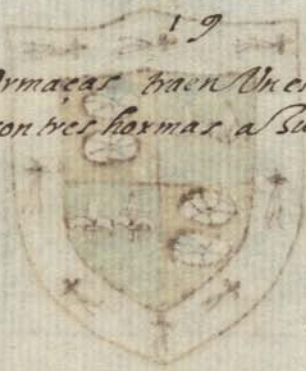 19
Ormaças traen Un es
con tres hormas a su